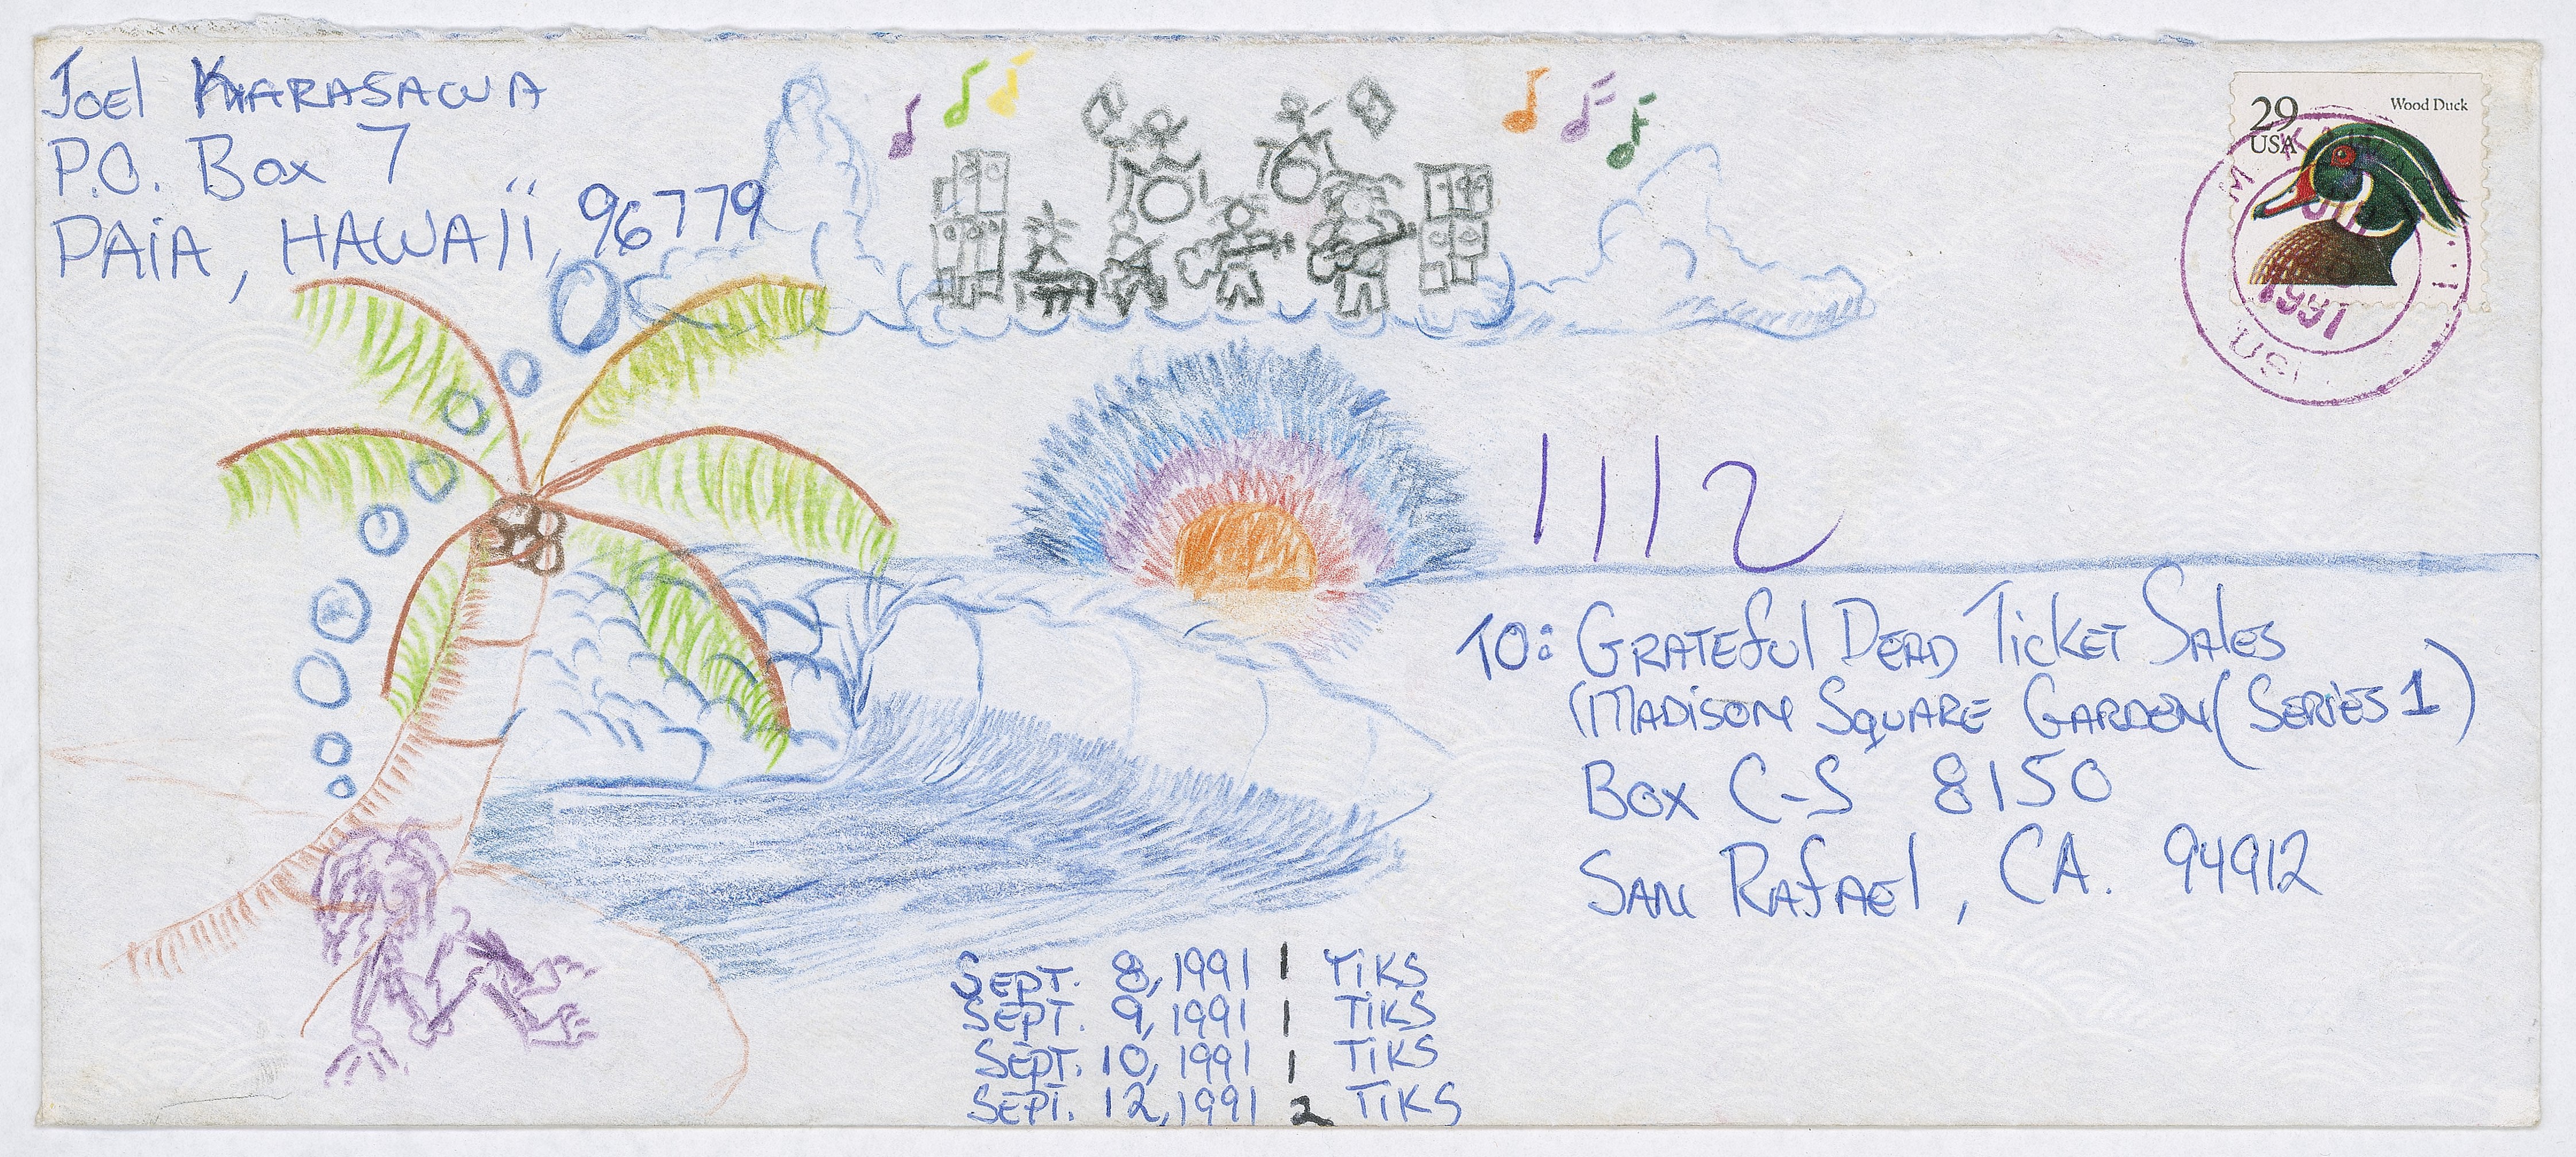 Joel Karasawa
P.O. Box 7
Paia, Hawaii, 96779
29
USA
Wood Duck
1991
1112
To: Grateful Dead Ticket Sales
(Madison Square Garden (Series 1)
Box C-S 8150
San Rafael, CA. 94912
Sept. 8, 1991 1 Tiks
Sept. 9, 1991 1 Tiks
Sept. 10, 1991 1 Tiks
Sept. 12, 1991 2 Tiks